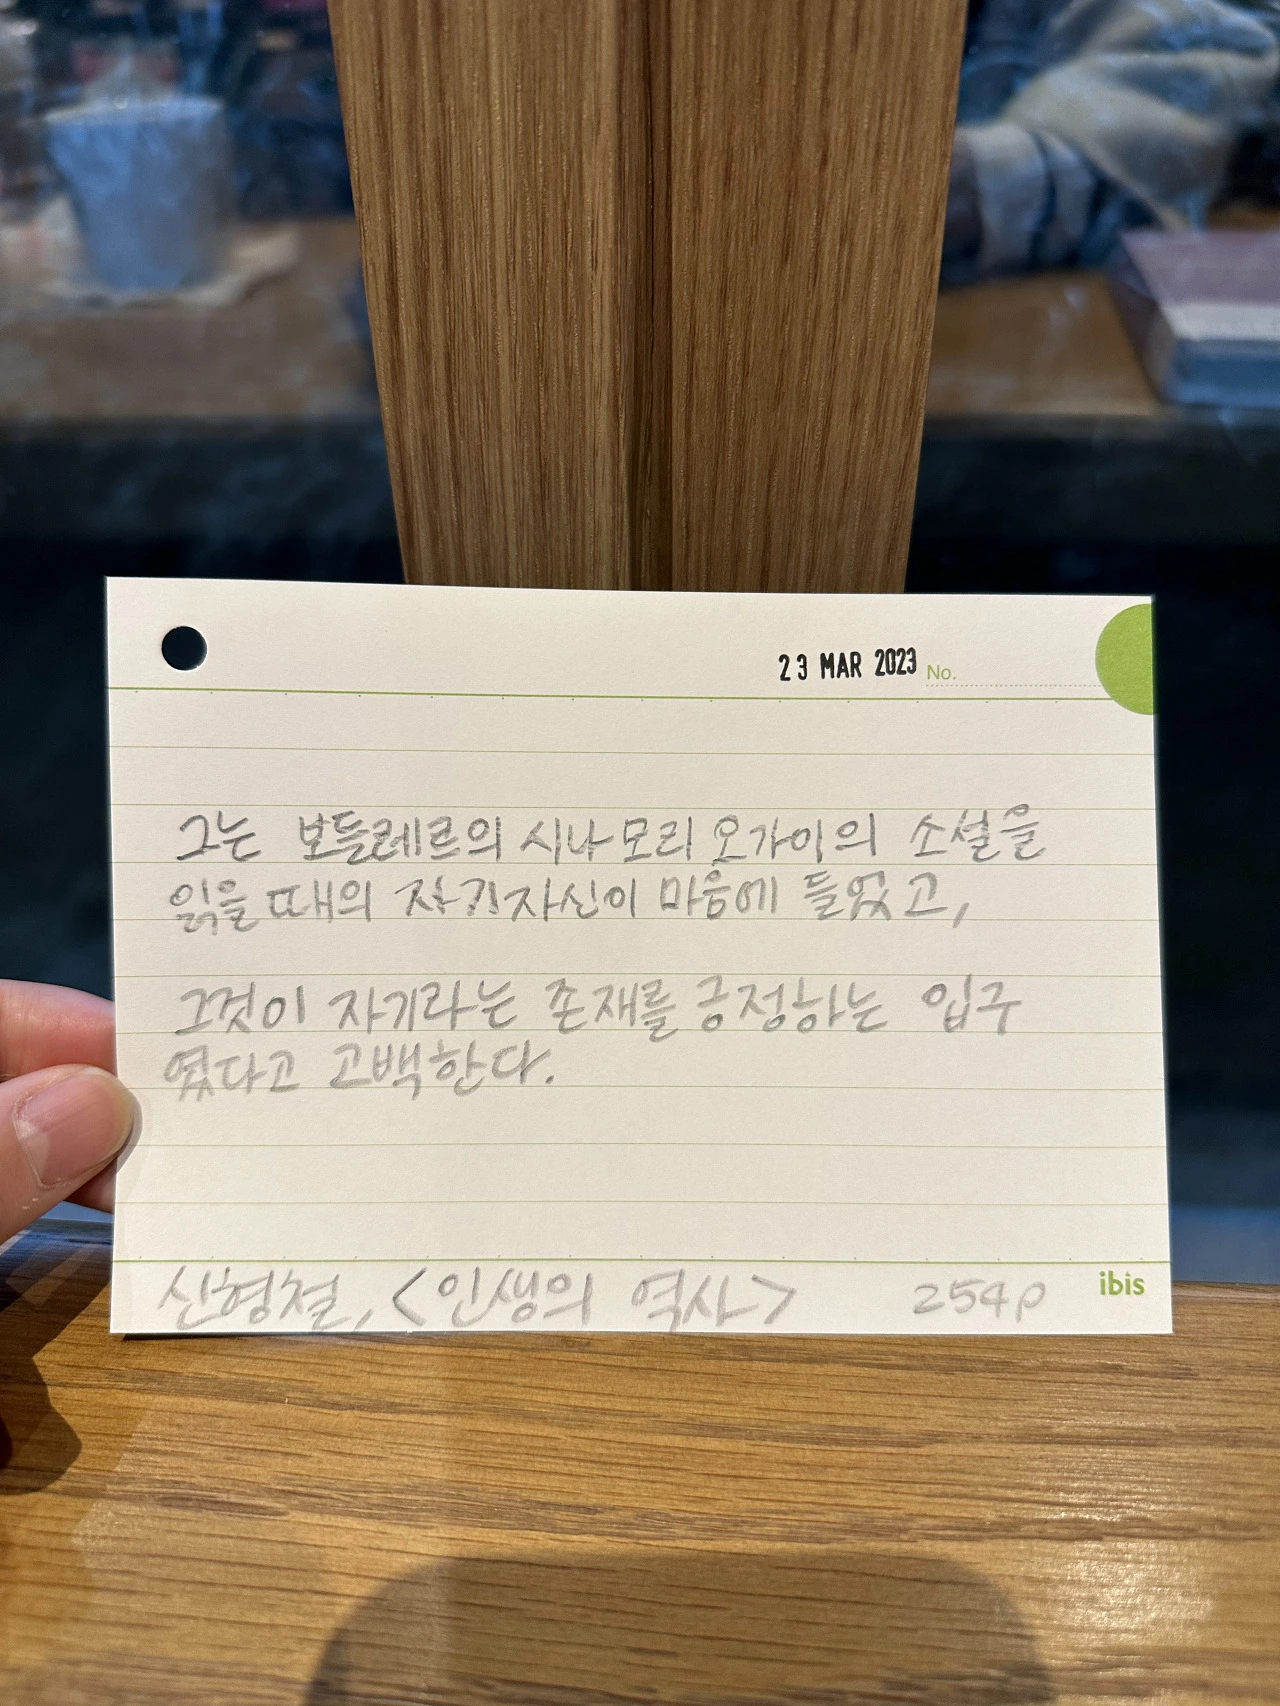 23 MAR 2023 No.
그는 보들레르의 시나 모리 오가이의 소설을
읽을 때의 자기 자신이 마음에 들었고,
그것이 자기라는 존재를 긍정하는 입구
였다고 고백한다.
신형철, <인생의 역사> 254p
ibis